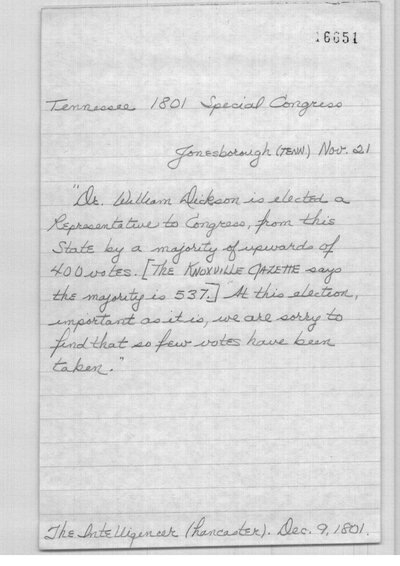 16651
Tennessee 1801 Special Congress
Jonesborough (TENN.) Nov. 21
"Dr. William Dickson is elected a
Representative to Congress, from this
State by a majority of upwards of
400 votes. [THE KNOXVILLE GAZETTE says
the majority is 537.] At this election,
important as it is, we are sorry to
find that so few votes have been
taken."
The Intelligencer (Lancaster). Dec. 9, 1801.